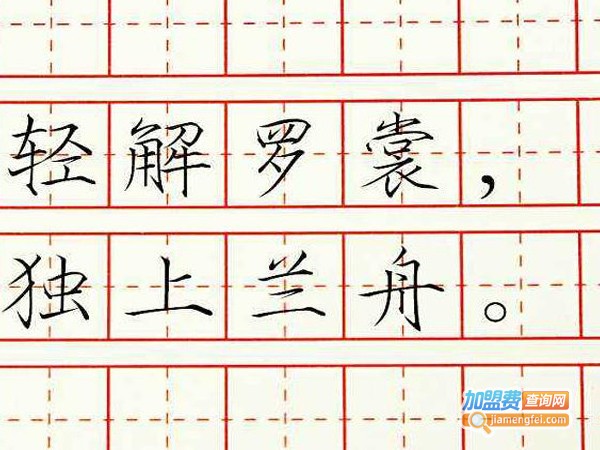 轻解罗裳，
独上兰舟。
加盟费查询网
jiamengfei.com